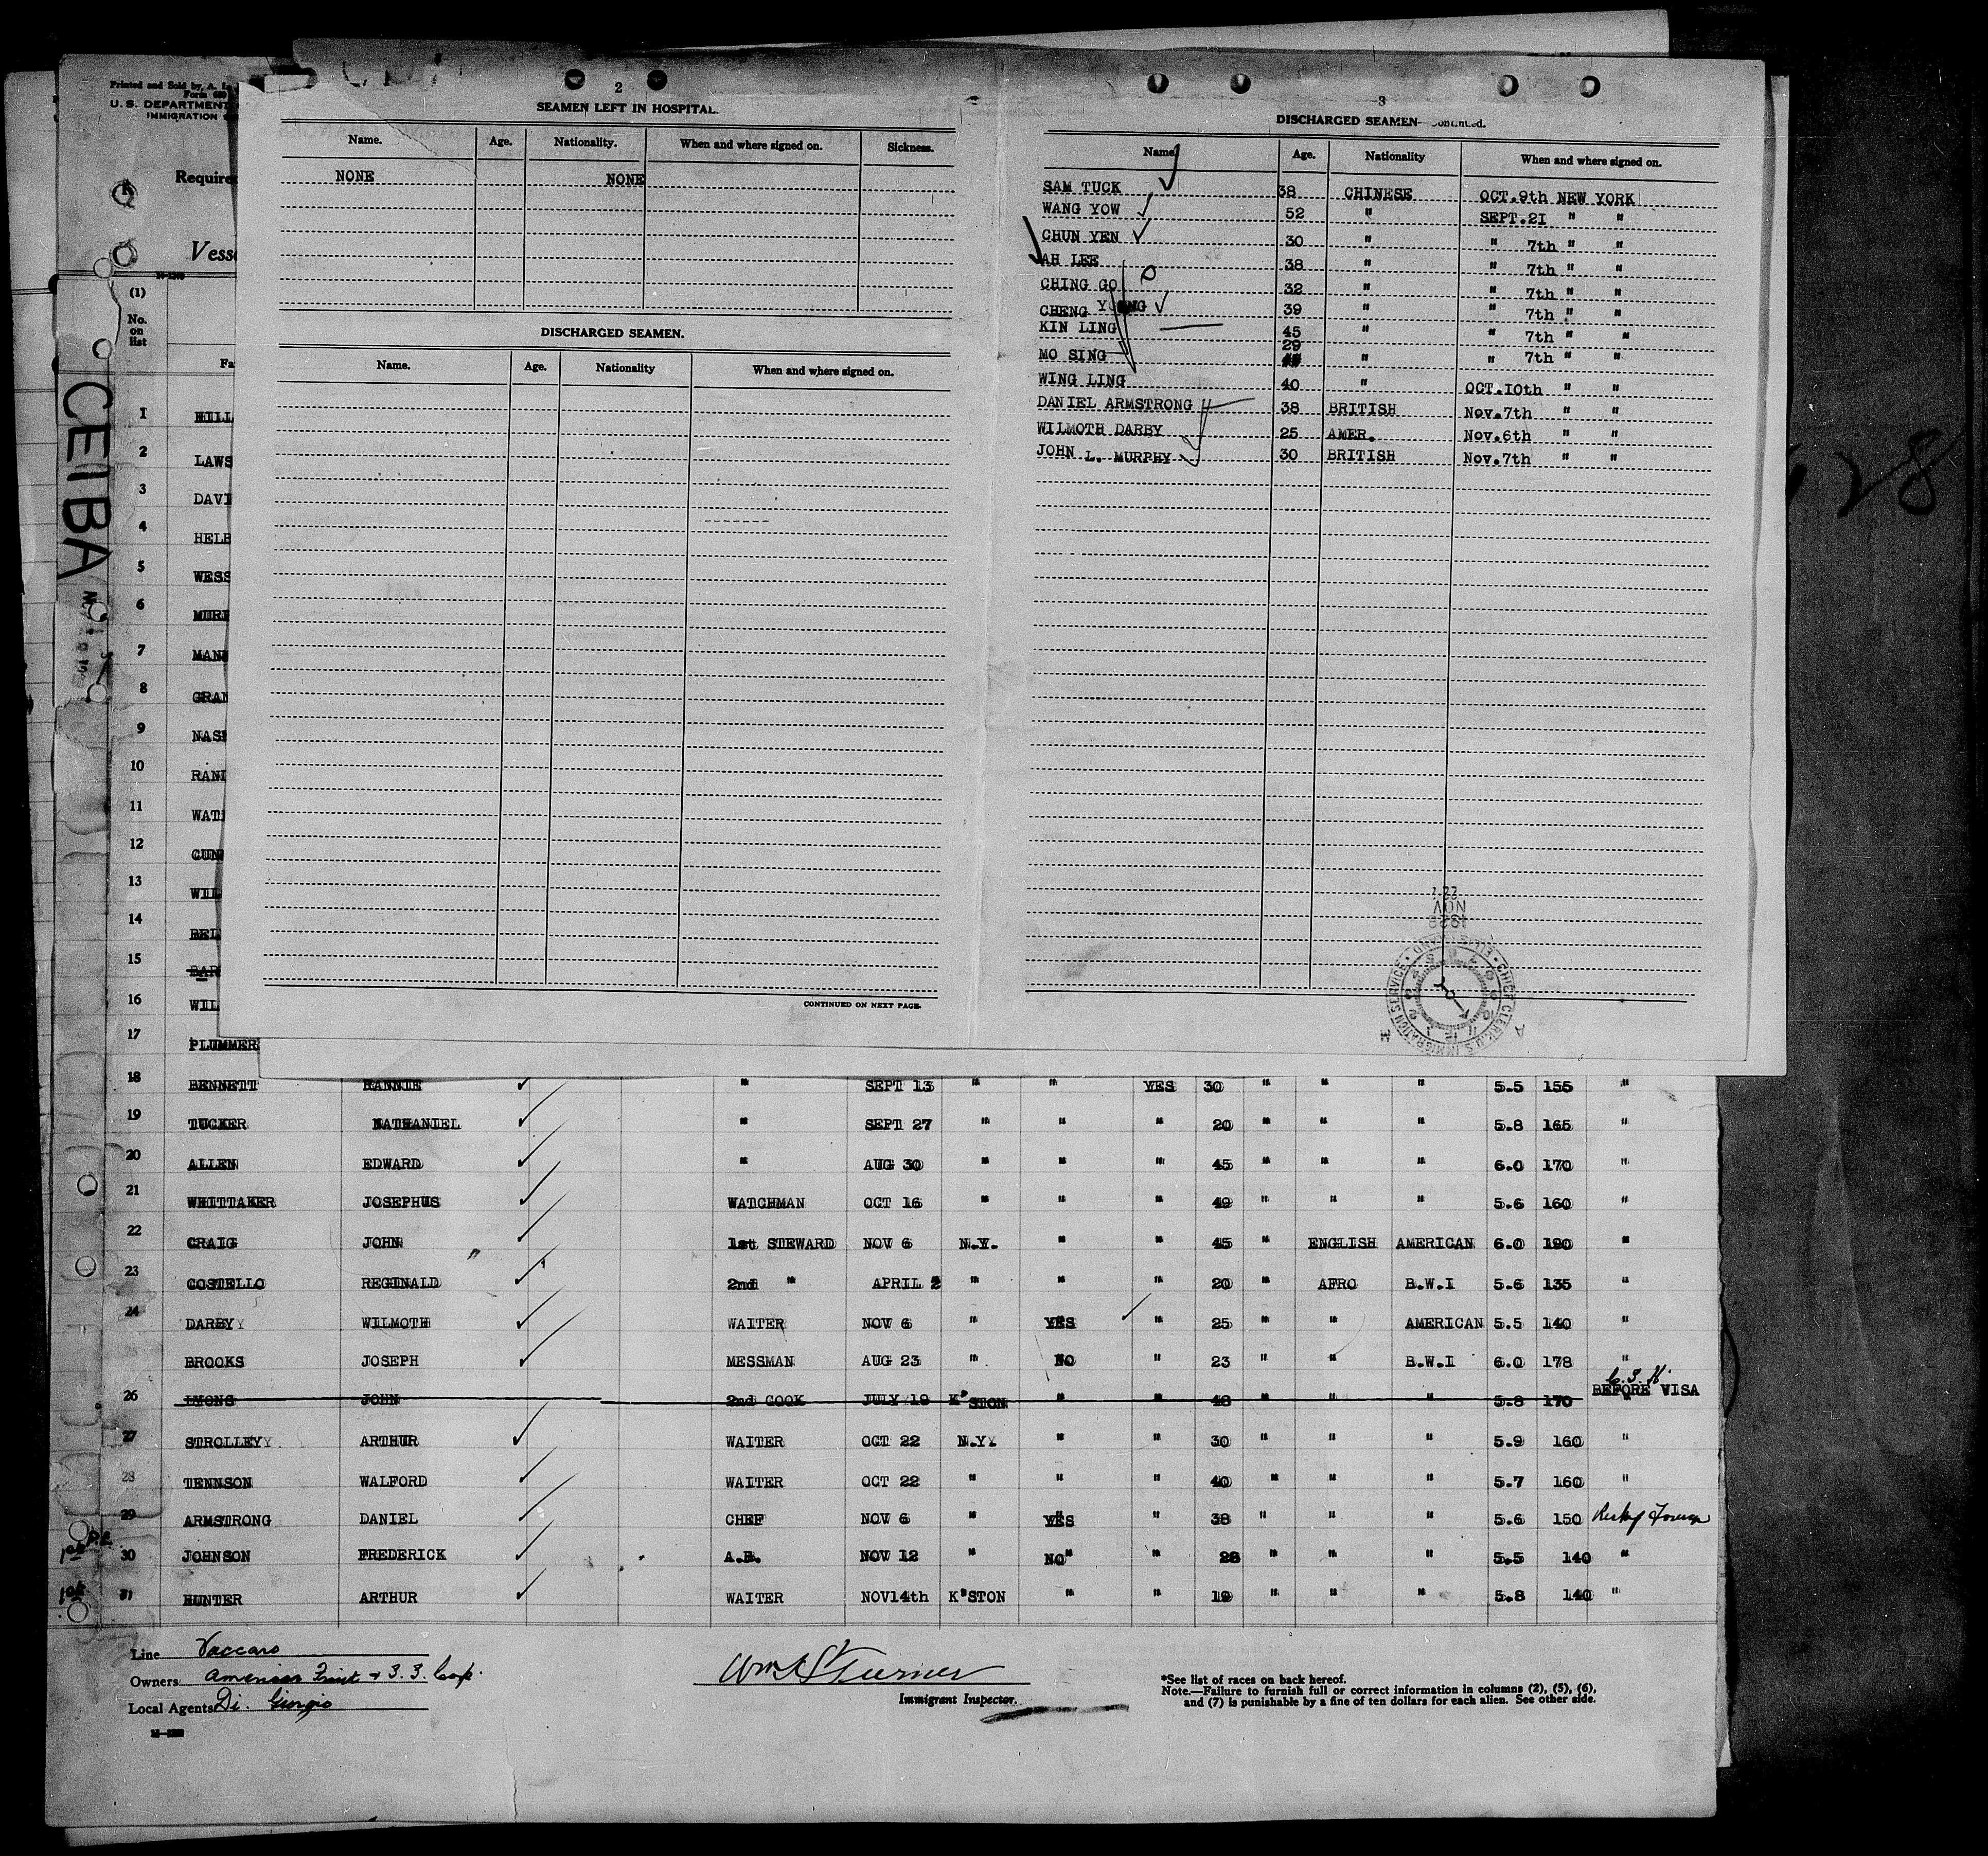 Printed and Sold by A. L.
Form 680
U. S. DEPARTMENT
IMMIGRATION
Require
Vess
(1)
No.
on
list
Fa
CEIBA
2
SEAMEN LEFT IN HOSPITAL.
Name. Age. Nationality. When and where signed on. Sickness.
NONE NONE
DISCHARGED SEAMEN.
Name. Age. Nationality When and where signed on.
CONTINUED ON NEXT PAGE.
3
DISCHARGED SEAMEN—Continued.
Name Age. Nationality When and where signed on.
SAM TUCK 38 CHINESE OCT.9th NEW YORK
WANG YOW 52 " SEPT.21 " "
CHUN YEN 30 " " 7th " "
AH LEE 38 " " 7th " "
CHING GO 32 " " 7th " "
CHENG YOUNG 39 " " 7th " "
KIN LING 45 " " 7th " "
MO SING 29 " " 7th " "
WING LING 40 " OCT.10th " "
DANIEL ARMSTRONG 38 BRITISH Nov.7th " "
WILMOTH DARBY 25 AMER. Nov.6th " "
JOHN L. MURPHY 30 BRITISH Nov.7th " "
NOV
CHIEF CLERK U.S. IMMIGRATION SERVICE • ELLIS ISLAND •
28
1 HILL
2 LAWS
3 DAVI
4 HELB
5 WESS
6 MURP
7 MANN
8 GRAN
9 NASH
10 RAND
11 WAT
12 GUN
13 WIL
14 BEL
15 BAR
16 WIL
17 PLUMMER
18 BENNETT RANNIE " SEPT 13 " " YES 30 " " " 5.5 155 "
19 TUCKER NATHANIEL " SEPT 27 " " " 20 " " " 5.8 165 "
20 ALLEN EDWARD " AUG 30 " " " 45 " " " 6.0 170 "
21 WHITTAKER JOSEPHUS WATCHMAN OCT 16 " " " 49 " " " 5.6 160 "
22 CRAIG JOHN 1st STEWARD NOV 6 N.Y. " " 45 " ENGLISH AMERICAN 6.0 190 "
23 COSTELLO REGINALD 2nd " APRIL 2 " " " 20 " AFRO B.W.I 5.6 135 "
24 DARBY WILMOTH WAITER NOV 6 " YES " 25 " " AMERICAN 5.5 140 "
BROOKS JOSEPH MESSMAN AUG 23 " NO " 23 " " B.W.I 6.0 178 "
26 LYONS JOHN 2nd COOK JULY 19 K'STON " " 48 " " " 5.8 170 BEFORE VISA
27 STROLLEY ARTHUR WAITER OCT 22 N.Y. " " 30 " " " 5.9 160 "
28 TENNSON WALFORD WAITER OCT 22 " " " 40 " " " 5.7 160 "
29 ARMSTRONG DANIEL CHEF NOV 6 " YES " 38 " " " 5.6 150
30 JOHNSON FREDERICK A.B. NOV 12 " NO" " 28 " " " 5.5 140 "
31 HUNTER ARTHUR WAITER NOV14th K'STON " " 19 " " " 5.8 140 "
Line Vaccaro
Owners American Fruit & S. S. Corp.
Local Agents Di. Giorgio
Wm S Turner
Immigrant Inspector.
*See list of races on back hereof.
Note.—Failure to furnish full or correct information in columns (2), (5), (6),
and (7) is punishable by a fine of ten dollars for each alien. See other side.